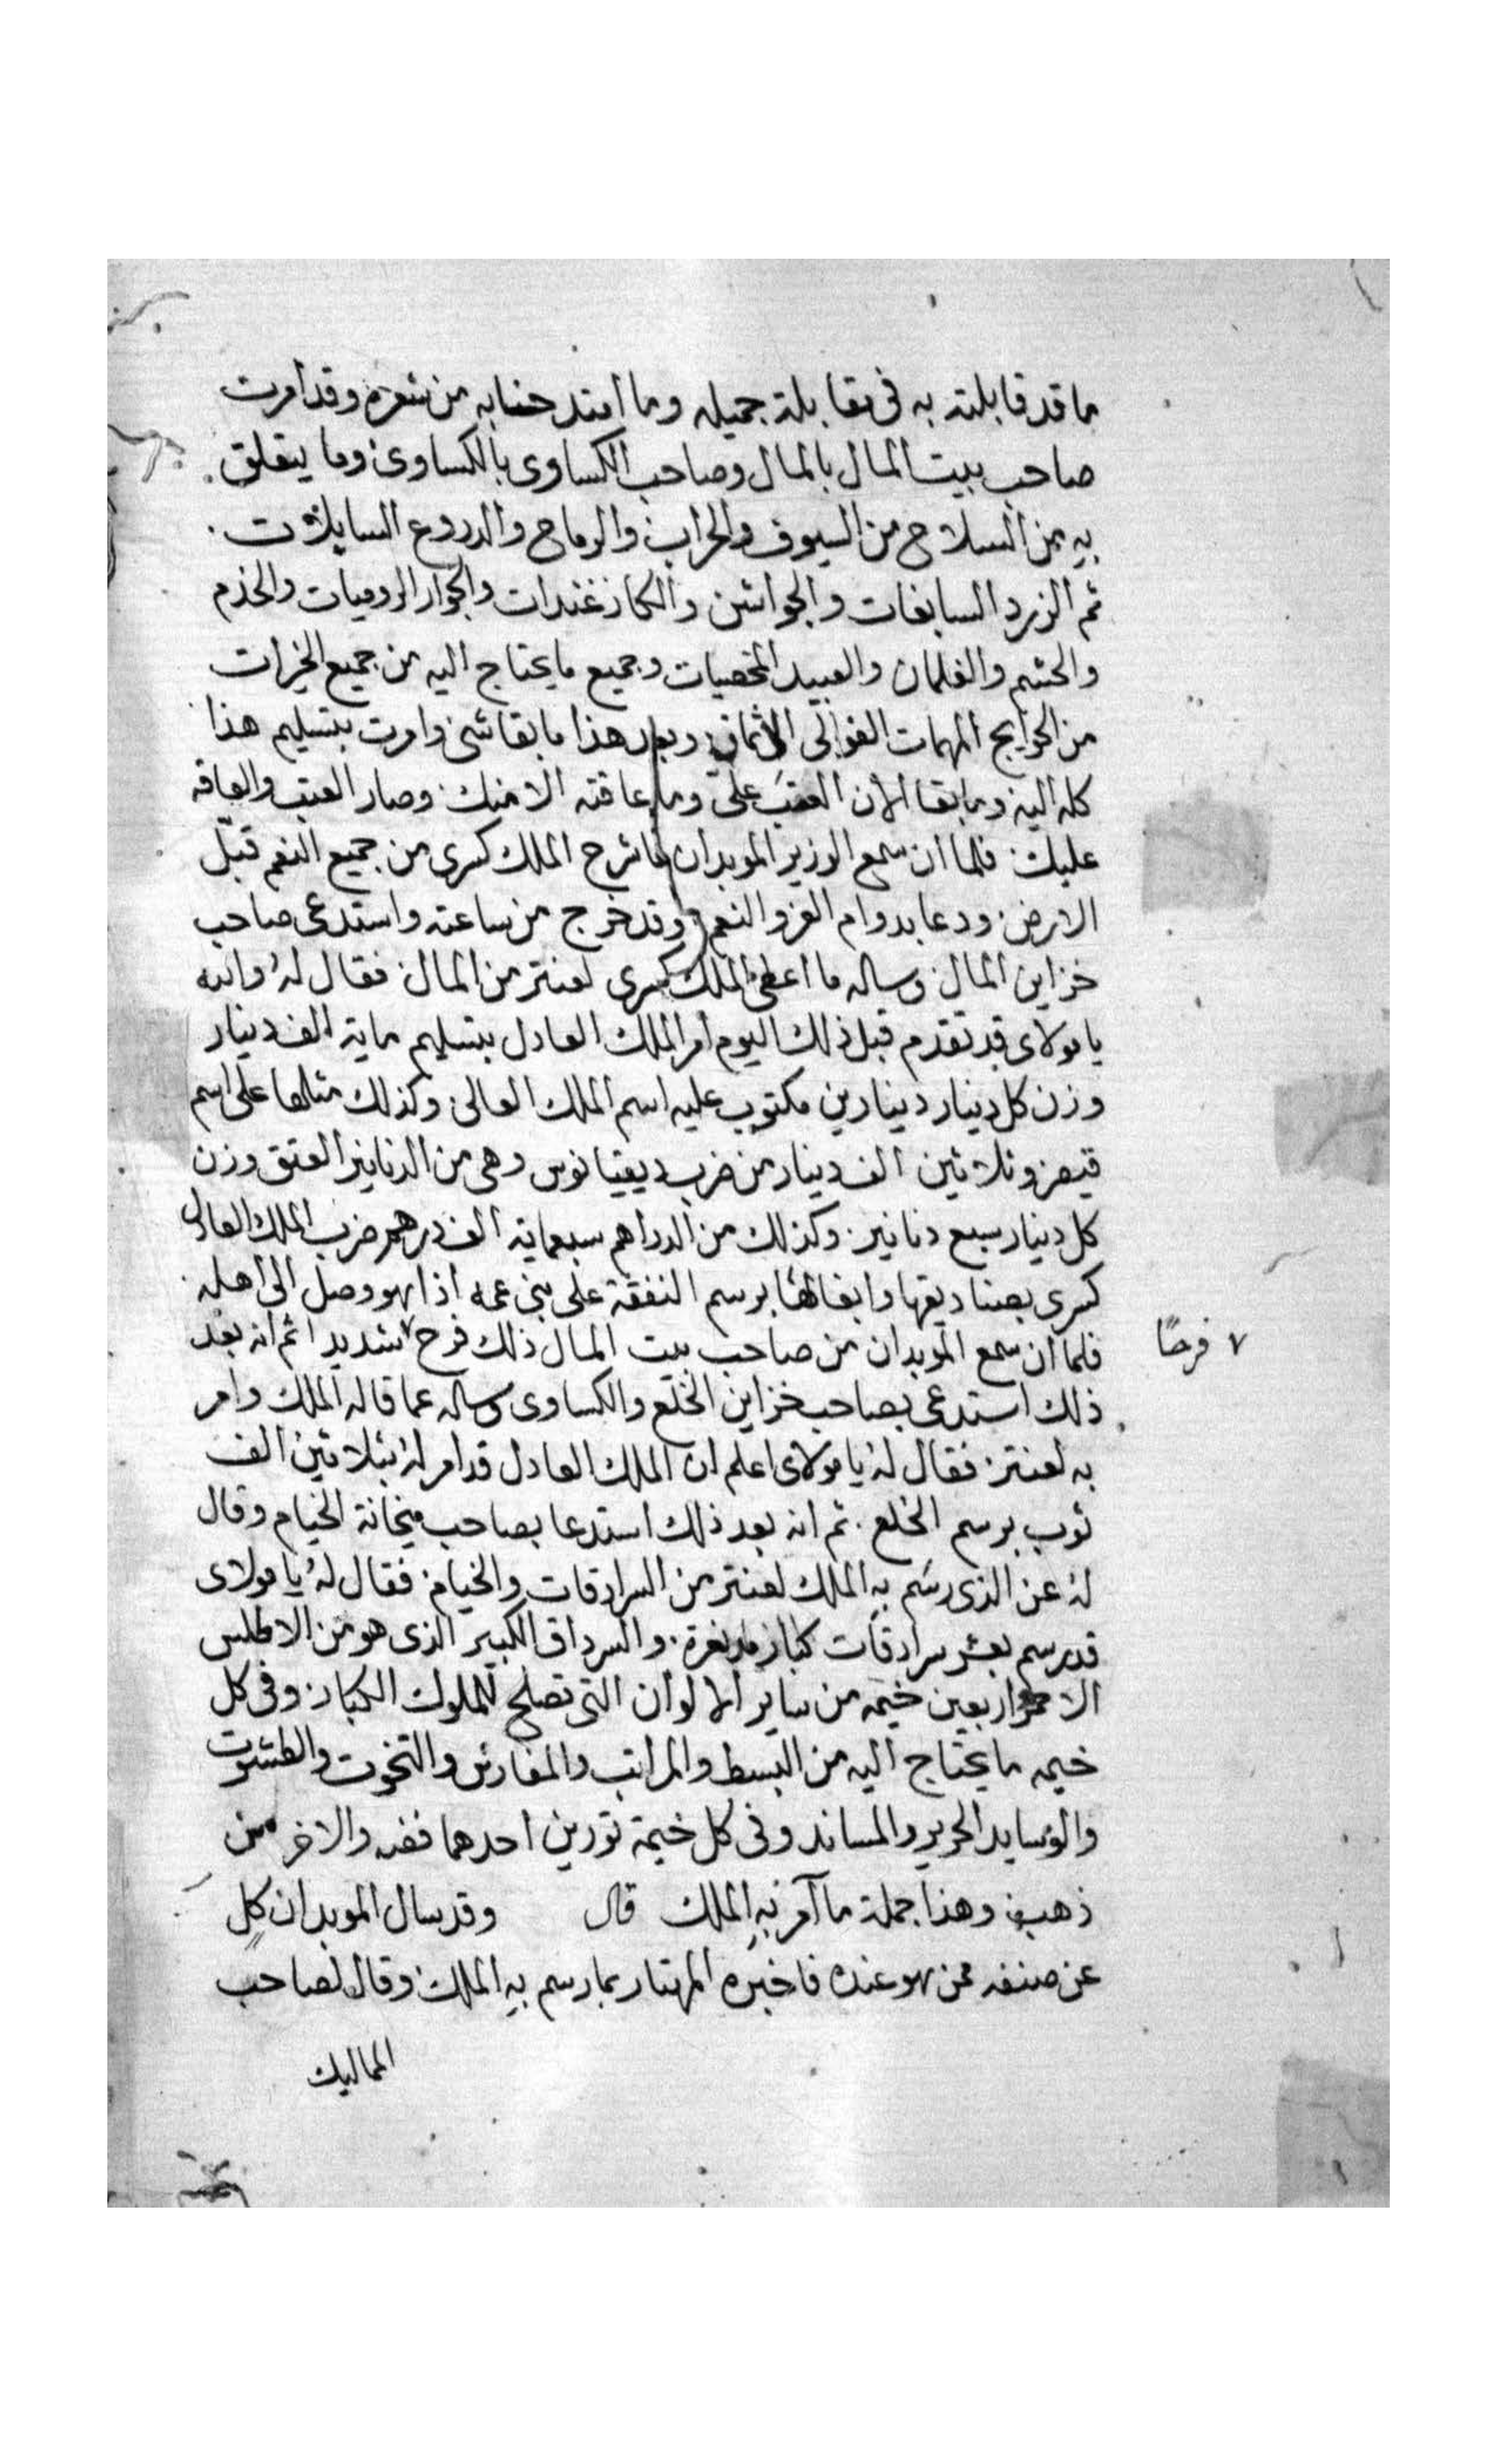 ما قد قابلته به فى مقابلة جميله وما امتد حنابه من شعره وقد امرت
صاحب بيت المال بالمال وصاحب الكساوى بالكساوى وما يتعلق
به من السلاح من السيوف والحراب والرماح والدروع السايلات
ثم الزرد السابغات والجواشن والكازغندات والجوار الروميات والخدم
والحشم والغلمان والعبيد المخصيات وجميع ما يحتاج اليه من جميع الخيرات
من الحوايج المهمات الغوالى الاثمان وبعد هذا ما بقا شى وامرت بتسليم هذا
كله اليه وما بقا الان العتب علىّ وما عاقته الا منك وصار العتب والعاقه
عليك فلما ان سمع الوزير الموبدان ما شرح الملك كسرى من جميع النعم قبّل
الارض ودعا بدوام العز والنعم وقد خرج من ساعته واستدعى صاحب
خزاين المال وساله ما اعطى الملك كسرى لعنتر من المال فقال له والله
يا مولاى قد تقدم قبل ذلك اليوم امر الملك العادل بتسليم ماية الف دينار
وزن كل دينار دينارين مكتوب عليه اسم الملك العالى وكذلك مثلها على اسم
قيصر وثلاثين الف دينار من ضرب ديقيانوس وهى من الدنانير العتق وزن
كل دينار سبع دنانير وكذلك من الدراهم سبعماية الف درهم ضرب الملك العادل
كسرى بصناديقها وابغالها برسم النفقة على بنى عمه اذا هو وصل الى اهله
فلما ان سمع الموبدان من صاحب بيت المال ذلك فرح ٧ شديدا ثم انه بعد
٧ فرحًا
ذلك استدعى بصاحب خزاين الخلع والكساوى وساله عما قاله الملك وامر
به لعنتر فقال له يا مولاى اعلم ان الملك العادل قد امر له بثلاثين الف
ثوب برسم الخلع ثم انه بعد ذلك استدعا بصاحب خانة الخيام وقال
له عن الذى رسم به الملك لعنتر من السرادقات والخيام فقال له يا مولاى
قد رسم بعشر سرادقات كبار والسرداق الكبير الذى هو من الاطلس
الاحمر اربعين خيمه من ساير الالوان التى تصلح للملوك الكبار وفى كل
خيمه ما يحتاج اليه من البسط والمراتب والمفارش والتخوت والطشوت
والوسايد الحرير والمساند وفى كل خيمة تورين احدهما فضه والاخر من
ذهب وهذا جملة ما آمر به الملك قال وقد سال الموبدان كل
عن صنفه من هو عنده فاخبره المهتار بما رسم به الملك وقال لصاحب
المماليك